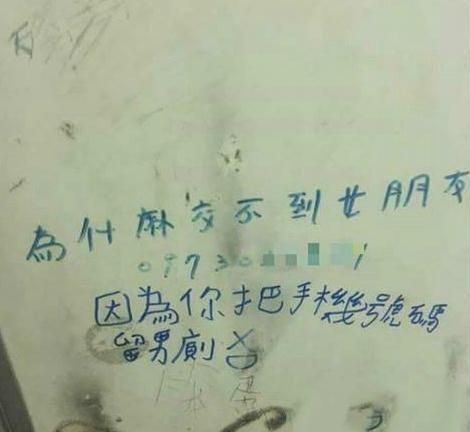 為什麻交不到女朋友
0973
因為你把手機號碼
留男廁